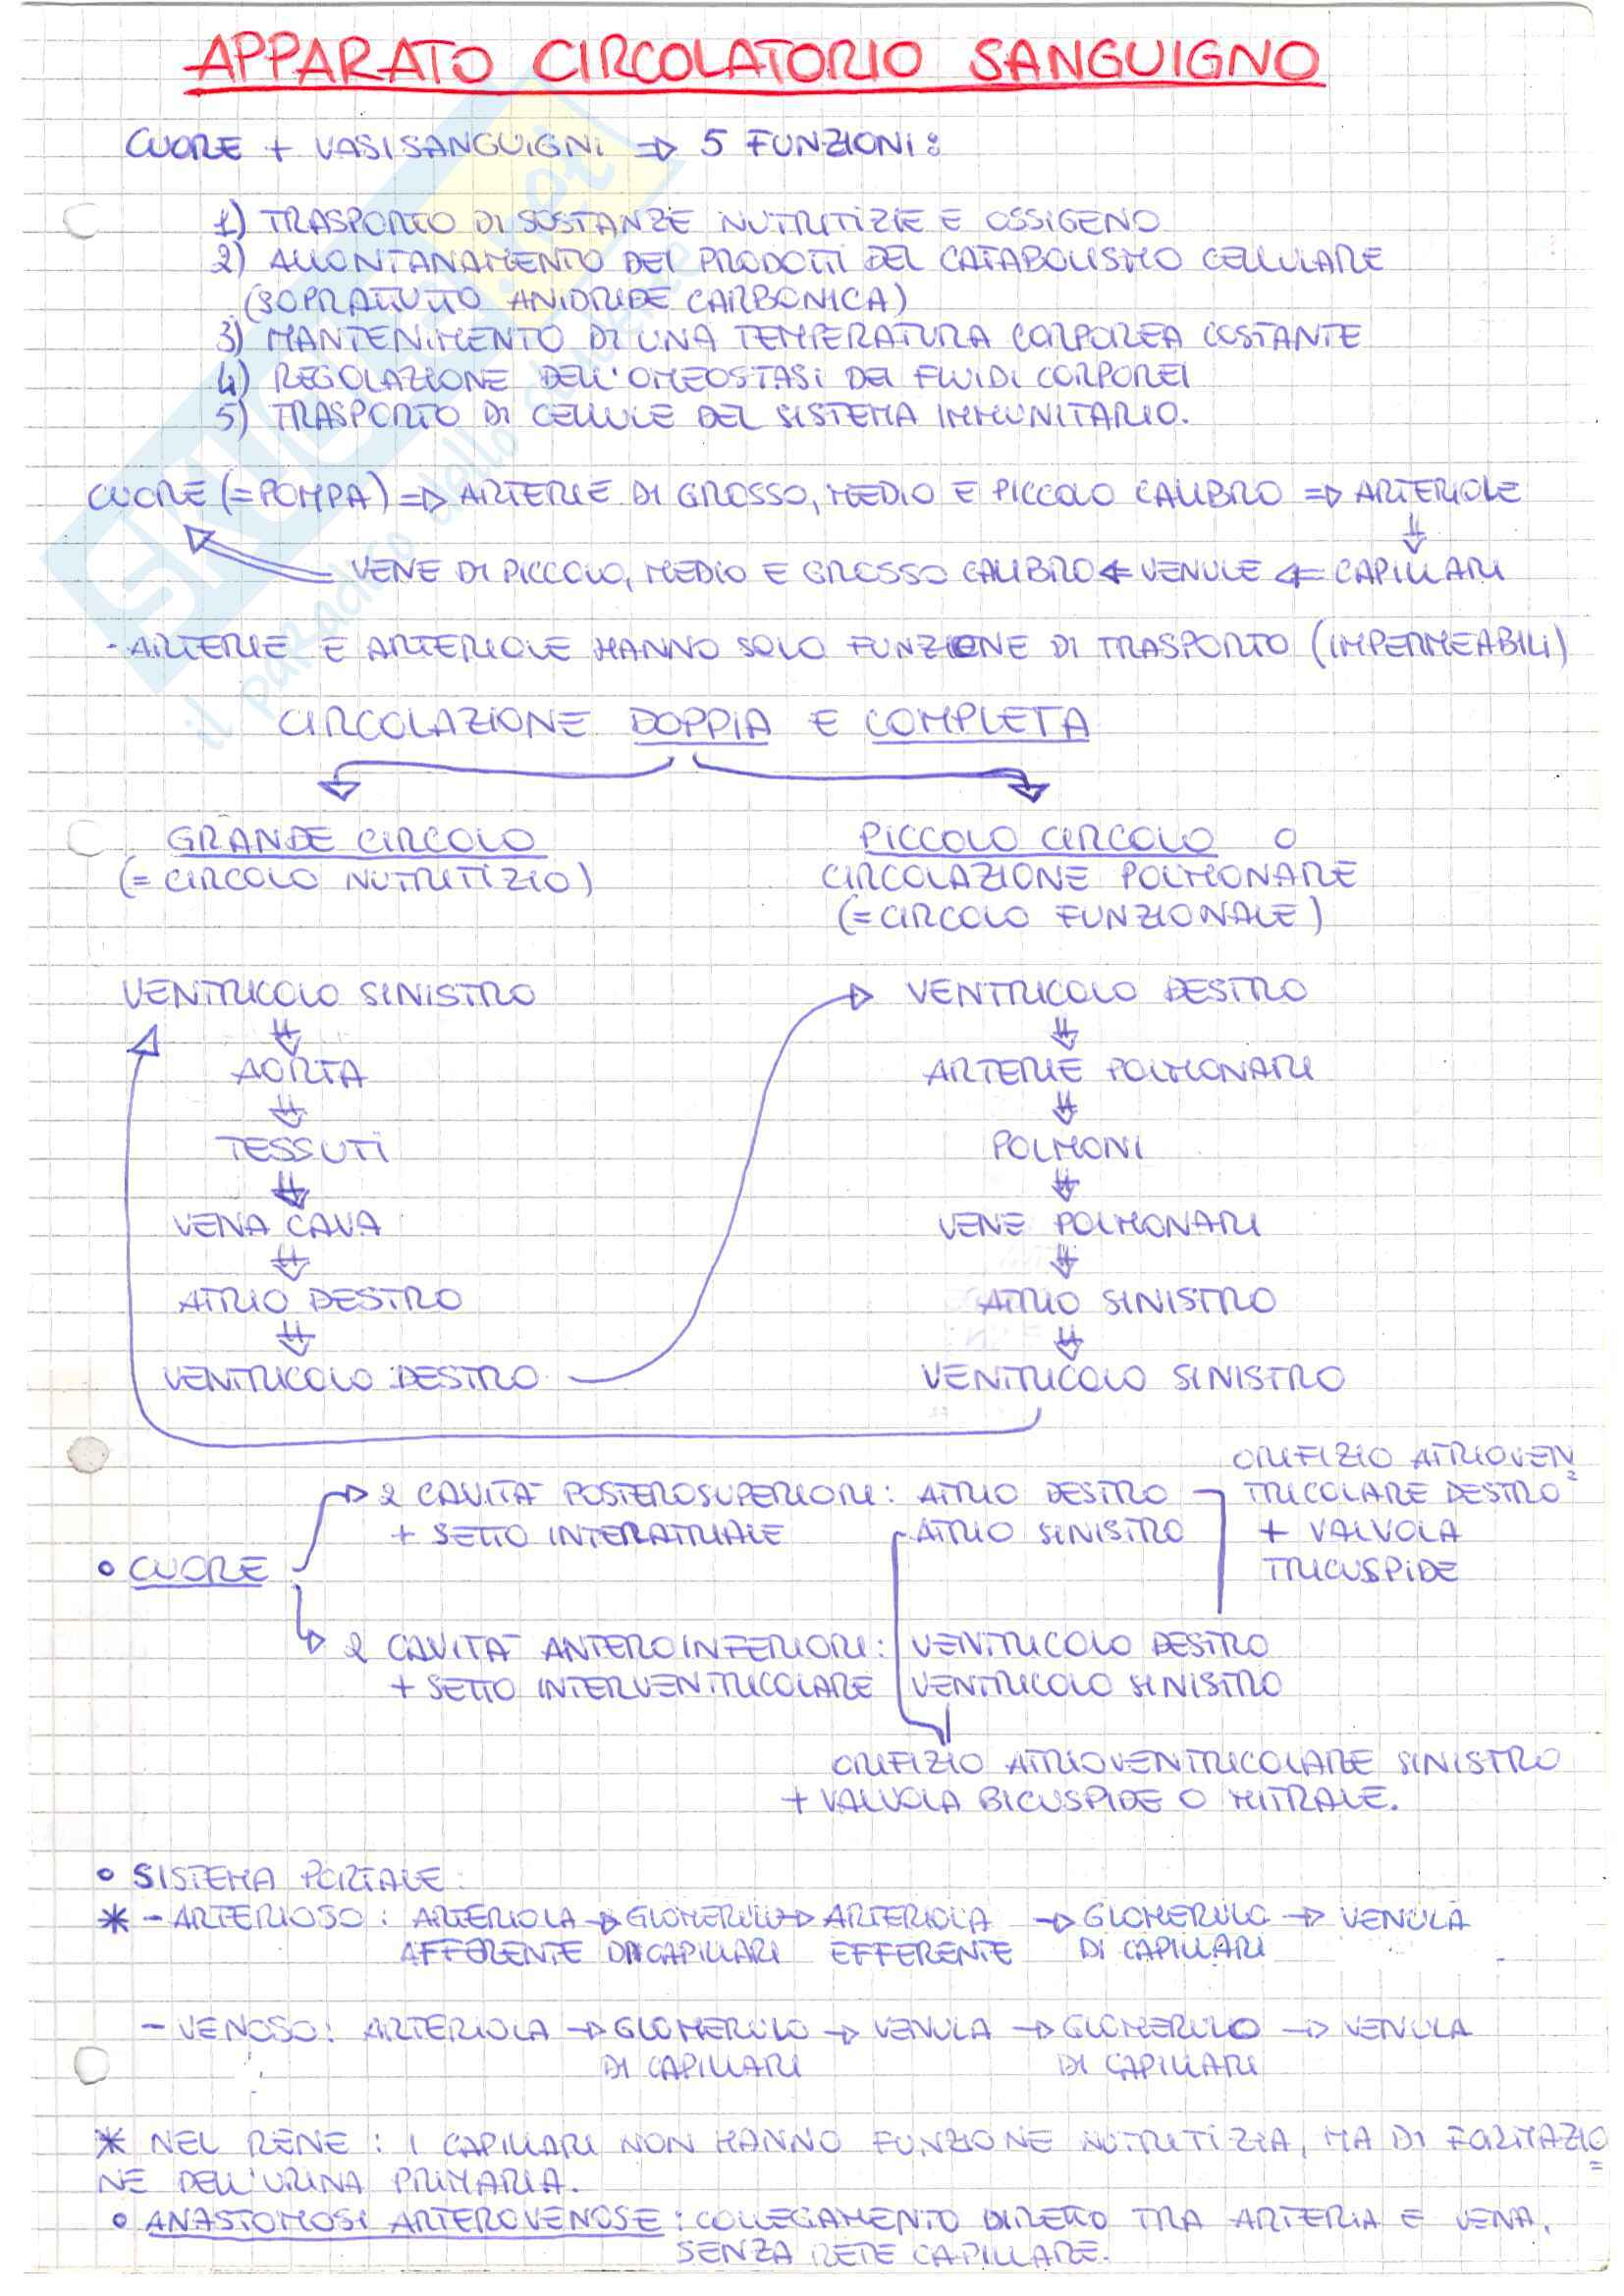 APPARATO CIRCOLATORIO SANGUIGNO
CUORE + VASI SANGUIGNI => 5 FUNZIONI:
1) TRASPORTO DI SOSTANZE NUTRITIZIE E OSSIGENO
2) ALLONTANAMENTO DEI PRODOTTI DEL CATABOLISMO CELLULARE
(SOPRATTUTTO ANIDRIDE CARBONICA)
3) MANTENIMENTO DI UNA TEMPERATURA CORPOREA COSTANTE
4) REGOLAZIONE DELL'OMEOSTASI DEI FLUIDI CORPOREI
5) TRASPORTO DI CELLULE DEL SISTEMA IMMUNITARIO.
CUORE (=POMPA) => ARTERIE DI GROSSO, MEDIO E PICCOLO CALIBRO => ARTERIOLE
VENE DI PICCOLO, MEDIO E GROSSO CALIBRO <= VENULE <= CAPILLARI
- ARTERIE E ARTERIOLE HANNO SOLO FUNZIONE DI TRASPORTO (IMPERMEABILI)
CIRCOLAZIONE DOPPIA E COMPLETA
GRANDE CIRCOLO
(= CIRCOLO NUTRITIZIO)
PICCOLO CIRCOLO O
CIRCOLAZIONE POLMONARE
(= CIRCOLO FUNZIONALE)
VENTRICOLO SINISTRO
AORTA
TESSUTI
VENA CAVA
ATRIO DESTRO
VENTRICOLO DESTRO
VENTRICOLO DESTRO
ARTERIE POLMONARI
POLMONI
VENE POLMONARI
ATRIO SINISTRO
VENTRICOLO SINISTRO
• CUORE
2 CAVITÀ POSTEROSUPERIORI: ATRIO DESTRO
+ SETTO INTERATRIALE ATRIO SINISTRO
ORIFIZIO ATRIOVEN
TRICOLARE DESTRO
+ VALVOLA
TRICUSPIDE
2 CAVITÀ ANTEROINFERIORI: VENTRICOLO DESTRO
+ SETTO INTERVENTRICOLARE VENTRICOLO SINISTRO
ORIFIZIO ATRIOVENTRICOLARE SINISTRO
+ VALVOLA BICUSPIDE O MITRALE.
• SISTEMA PORTALE:
* - ARTERIOSO: ARTERIOLA → GLOMERULO → ARTERIOLA → GLOMERULO → VENULA
AFFERENTE DI CAPILLARI EFFERENTE DI CAPILLARI
- VENOSO: ARTERIOLA → GLOMERULO → VENULA → GLOMERULO → VENULA
DI CAPILLARI DI CAPILLARI
* NEL RENE: I CAPILLARI NON HANNO FUNZIONE NUTRITIZIA, MA DI FORMAZIO
NE DELL'URINA PRIMARIA.
• ANASTOMOSI ARTEROVENOSE: COLLEGAMENTO DIRETTO TRA ARTERIA E VENA,
SENZA RETE CAPILLARE.